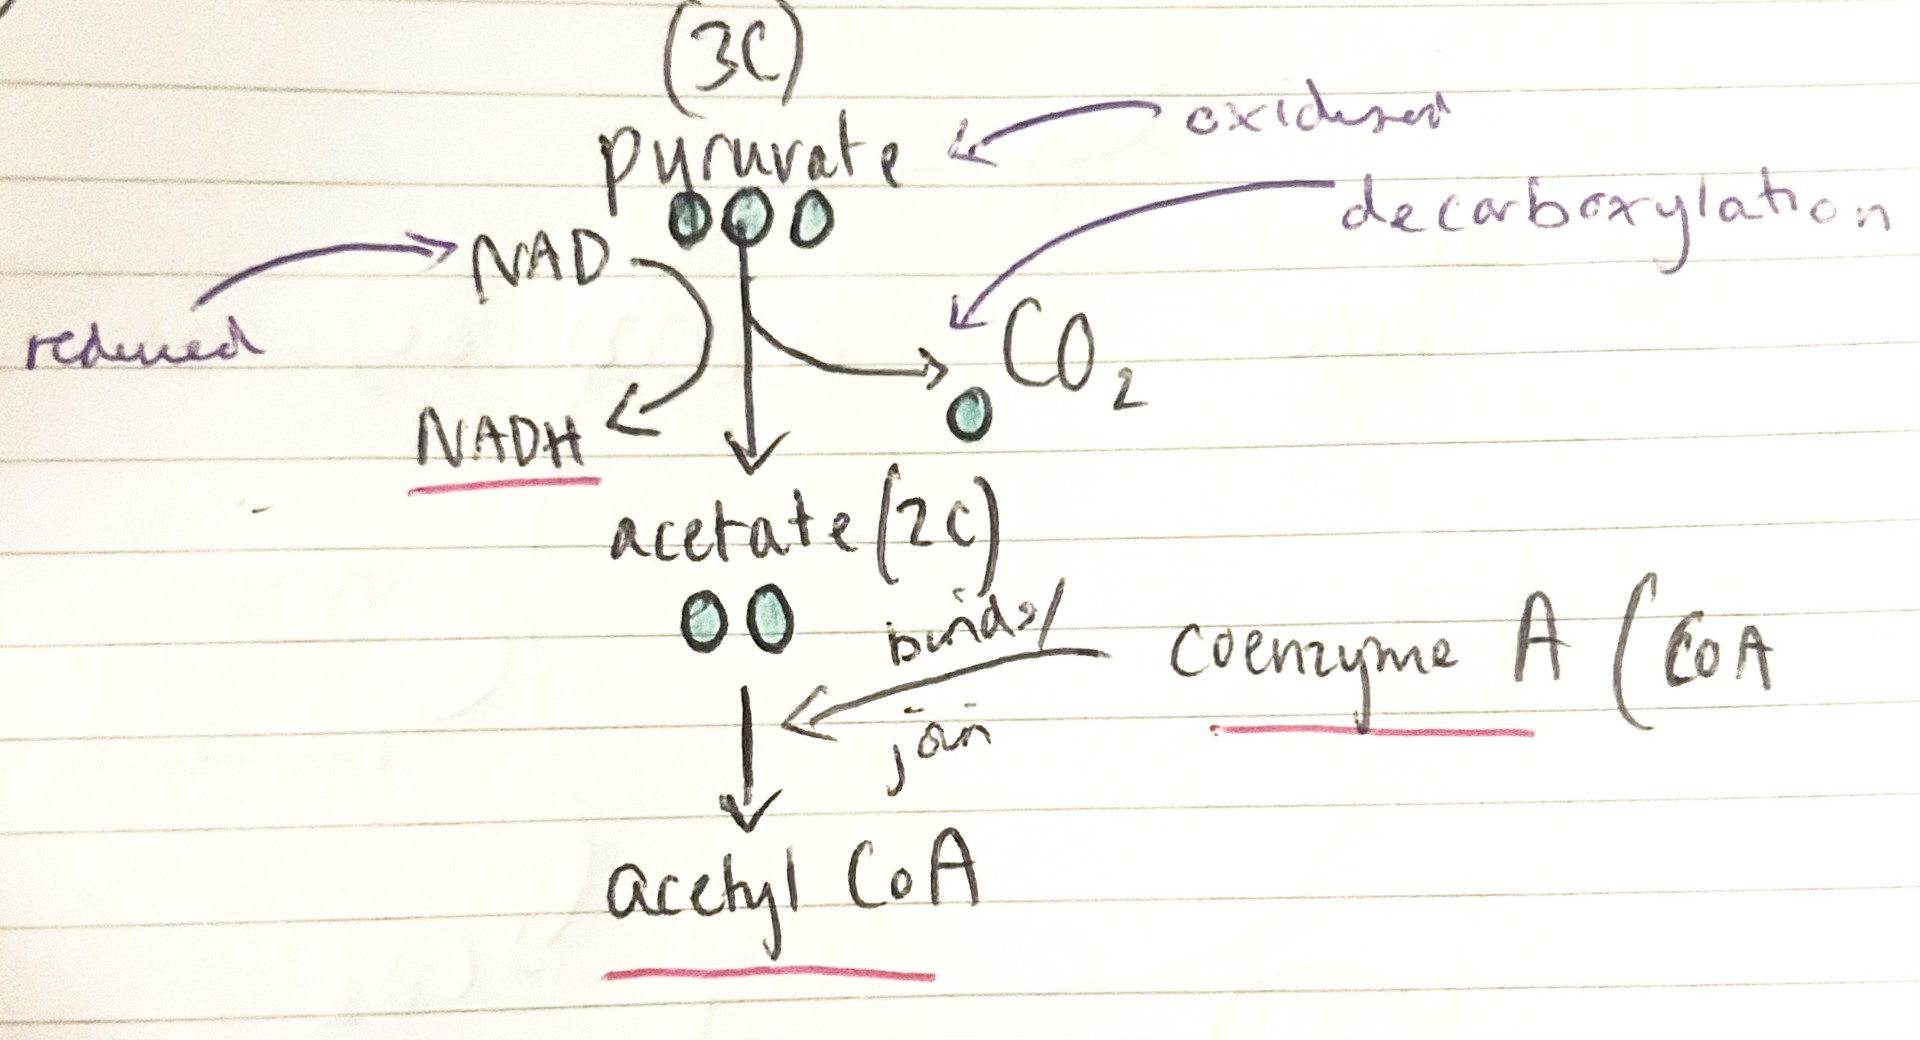 (3C)
pyruvate
oxidised
decarboxylation
NAD
reduced
CO2
NADH
acetate (2C)
binds/
join
coenzyme A (CoA
acetyl CoA